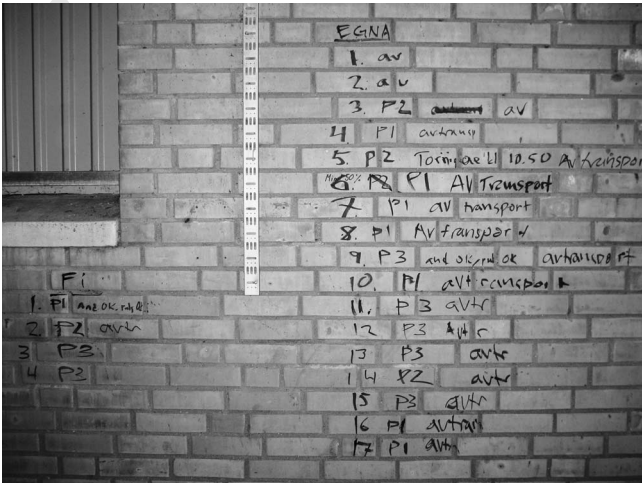 EGNA
1. av
2. av
3. P2 av
4 P1 avtransp
5. P2 10.50 Avtransport
6. P1 AV Transport
7 P1 av transport
8. P1 Avtransport
9. P3 and OK, pul OK avtransport
10. P1 avtransport
11. P3 avtr
12 P3 Avtr
13 P3 avtr
14 P2 avtr
15 P3 avtr
16 P1 avtran
17 P1 avtr
Fi
1. P1 And OK.
2 P2 avtr
3 P3
4 P3